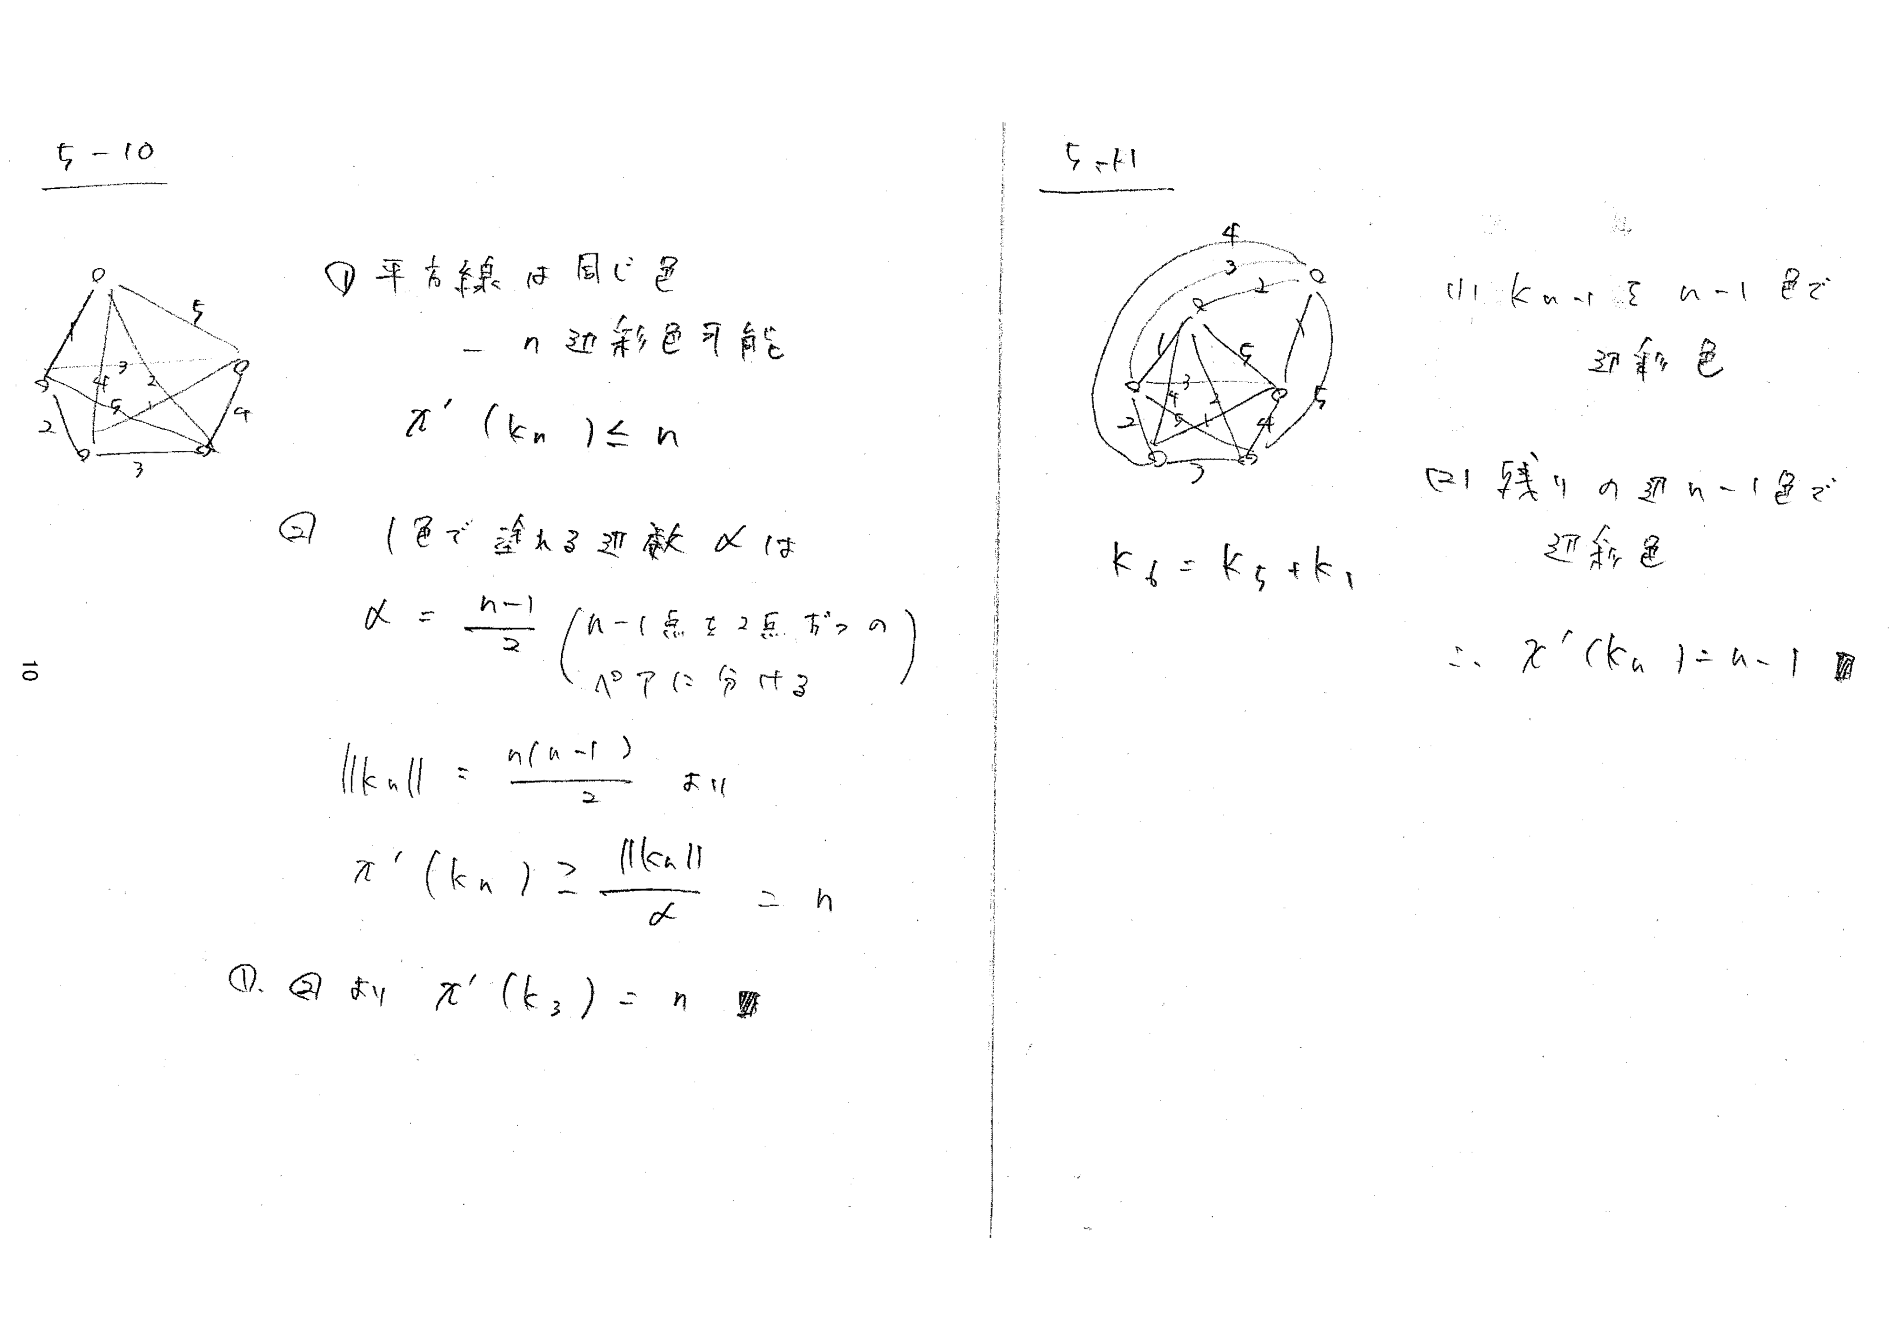 5-10
1
5
3
4
2
5
1
2
4
3
① 平方線は同じ色
_ n 辺彩色可能
χ'(Kn) ≤ n
② 1色で塗れる辺数 α は
α = n-1/2 (n-1点を2点ずつのペアに分ける)
||Kn|| = n(n-1)/2 より
χ'(Kn) ≥ ||Kn||/α = n
①、② より χ'(K3) = n
10
5-11
4
3
2
1
5
1
5
3
4
2
2
5
1
4
3
K6 = K5 + K1
(1) Kn-1 を n-1 色で
辺彩色
(2) 残りの辺 n-1色で
辺彩色
∴ χ'(Kn) = n-1